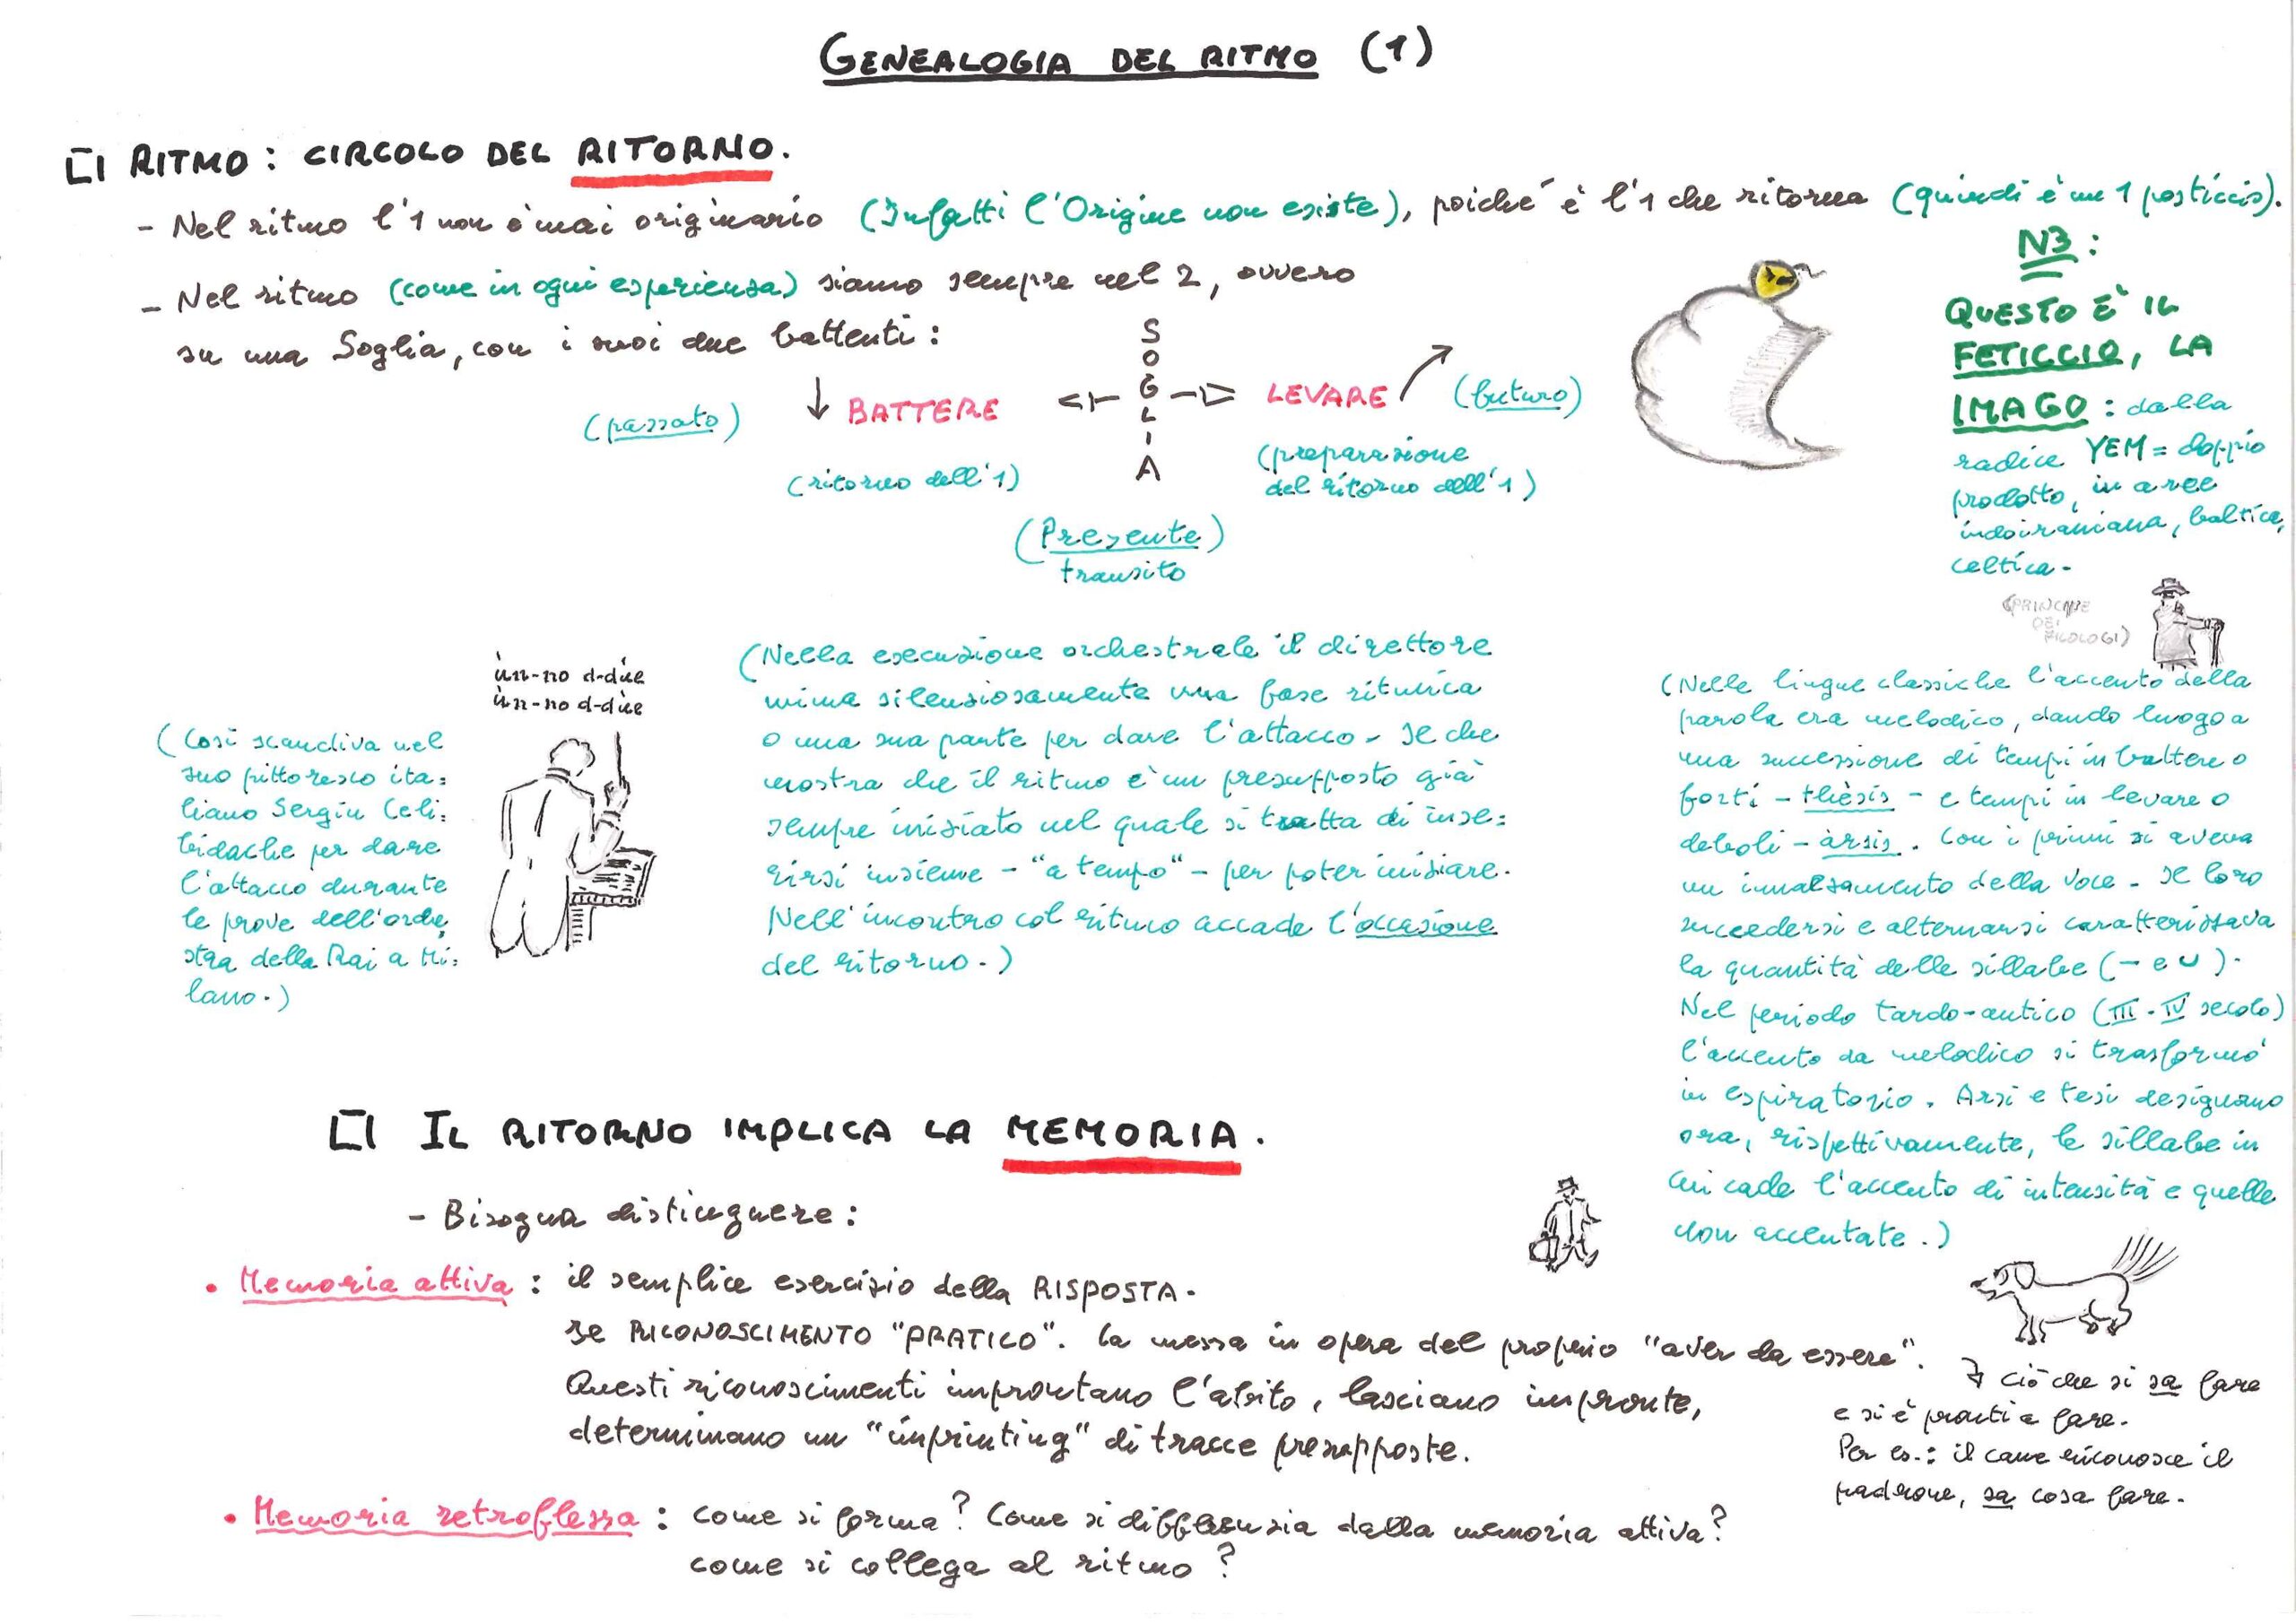 GENEALOGIA DEL RITMO (1)
RITMO: CIRCOLO DEL RITORNO.
- Nel ritmo l'1 non è mai originario (Infatti l'Origine non esiste), poiché è l'1 che ritorna (quindi è un 1 posticcio).
- Nel ritmo (come in ogni esperienza) siamo sempre nel 2, ovvero
su una Soglia, con i suoi due battenti:
SOGLIA
(passato) ↓ BATTERE
LEVARE (futuro)
(ritorno dell'1)
(preparazione
del ritorno dell'1)
(Presente)
transito
N3:
QUESTO È IL
FETICCIO, LA
IMAGO: dalla
radice YEM = doppio
prodotto, in aree
indoiraniana, baltica,
celtica.
(PRINCIPE
DEI
FILOLOGI)
ùn-no d-dùe
ùn-no d-dùe
(Così scandiva nel
suo pittoresco ita=
liano Sergiu Celi=
bidache per dare
l'attacco durante
le prove dell'orche
stra della Rai a Mi=
lano.)
(Nella esecuzione orchestrale il direttore
mima silenziosamente una fase ritmica
o una sua parte per dare l'attacco. Il che
mostra che il ritmo è un presupposto già
sempre iniziato nel quale si tratta di inse=
rirsi insieme - "a tempo" - per poter iniziare.
Nell'incontro col ritmo accade l'occasione
del ritorno.)
(Nelle lingue classiche l'accento della
parola era melodico, dando luogo a
una successione di tempi in battere o
forti - thèsis - e tempi in levare o
deboli - àrsis. Con i primi si aveva
un innalzamento della voce. Il loro
succedersi e alternarsi caratterizzava
la quantità delle sillabe (– e ∪).
Nel periodo tardo-antico (III-IV secolo)
l'accento da melodico si trasformò
in espiratorio. Arsi e tesi designano
ora, rispettivamente, le sillabe in
cui cade l'accento di intensità e quelle
non accentate.)
IL RITORNO IMPLICA LA MEMORIA.
- Bisogna distinguere:
• Memoria attiva: il semplice esercizio della RISPOSTA.
Il RICONOSCIMENTO "PRATICO". La messa in opera del proprio "aver da essere".
Questi riconoscimenti improntano l'abito, lasciano impronte,
determinano un "imprinting" di tracce presupposte.
ciò che si sa fare
e si è pronti a fare.
Per es.: il cane riconosce il
padrone, sa cosa fare.
• Memoria retroflessa: come si forma? Come si differenzia dalla memoria attiva?
come si collega al ritmo?